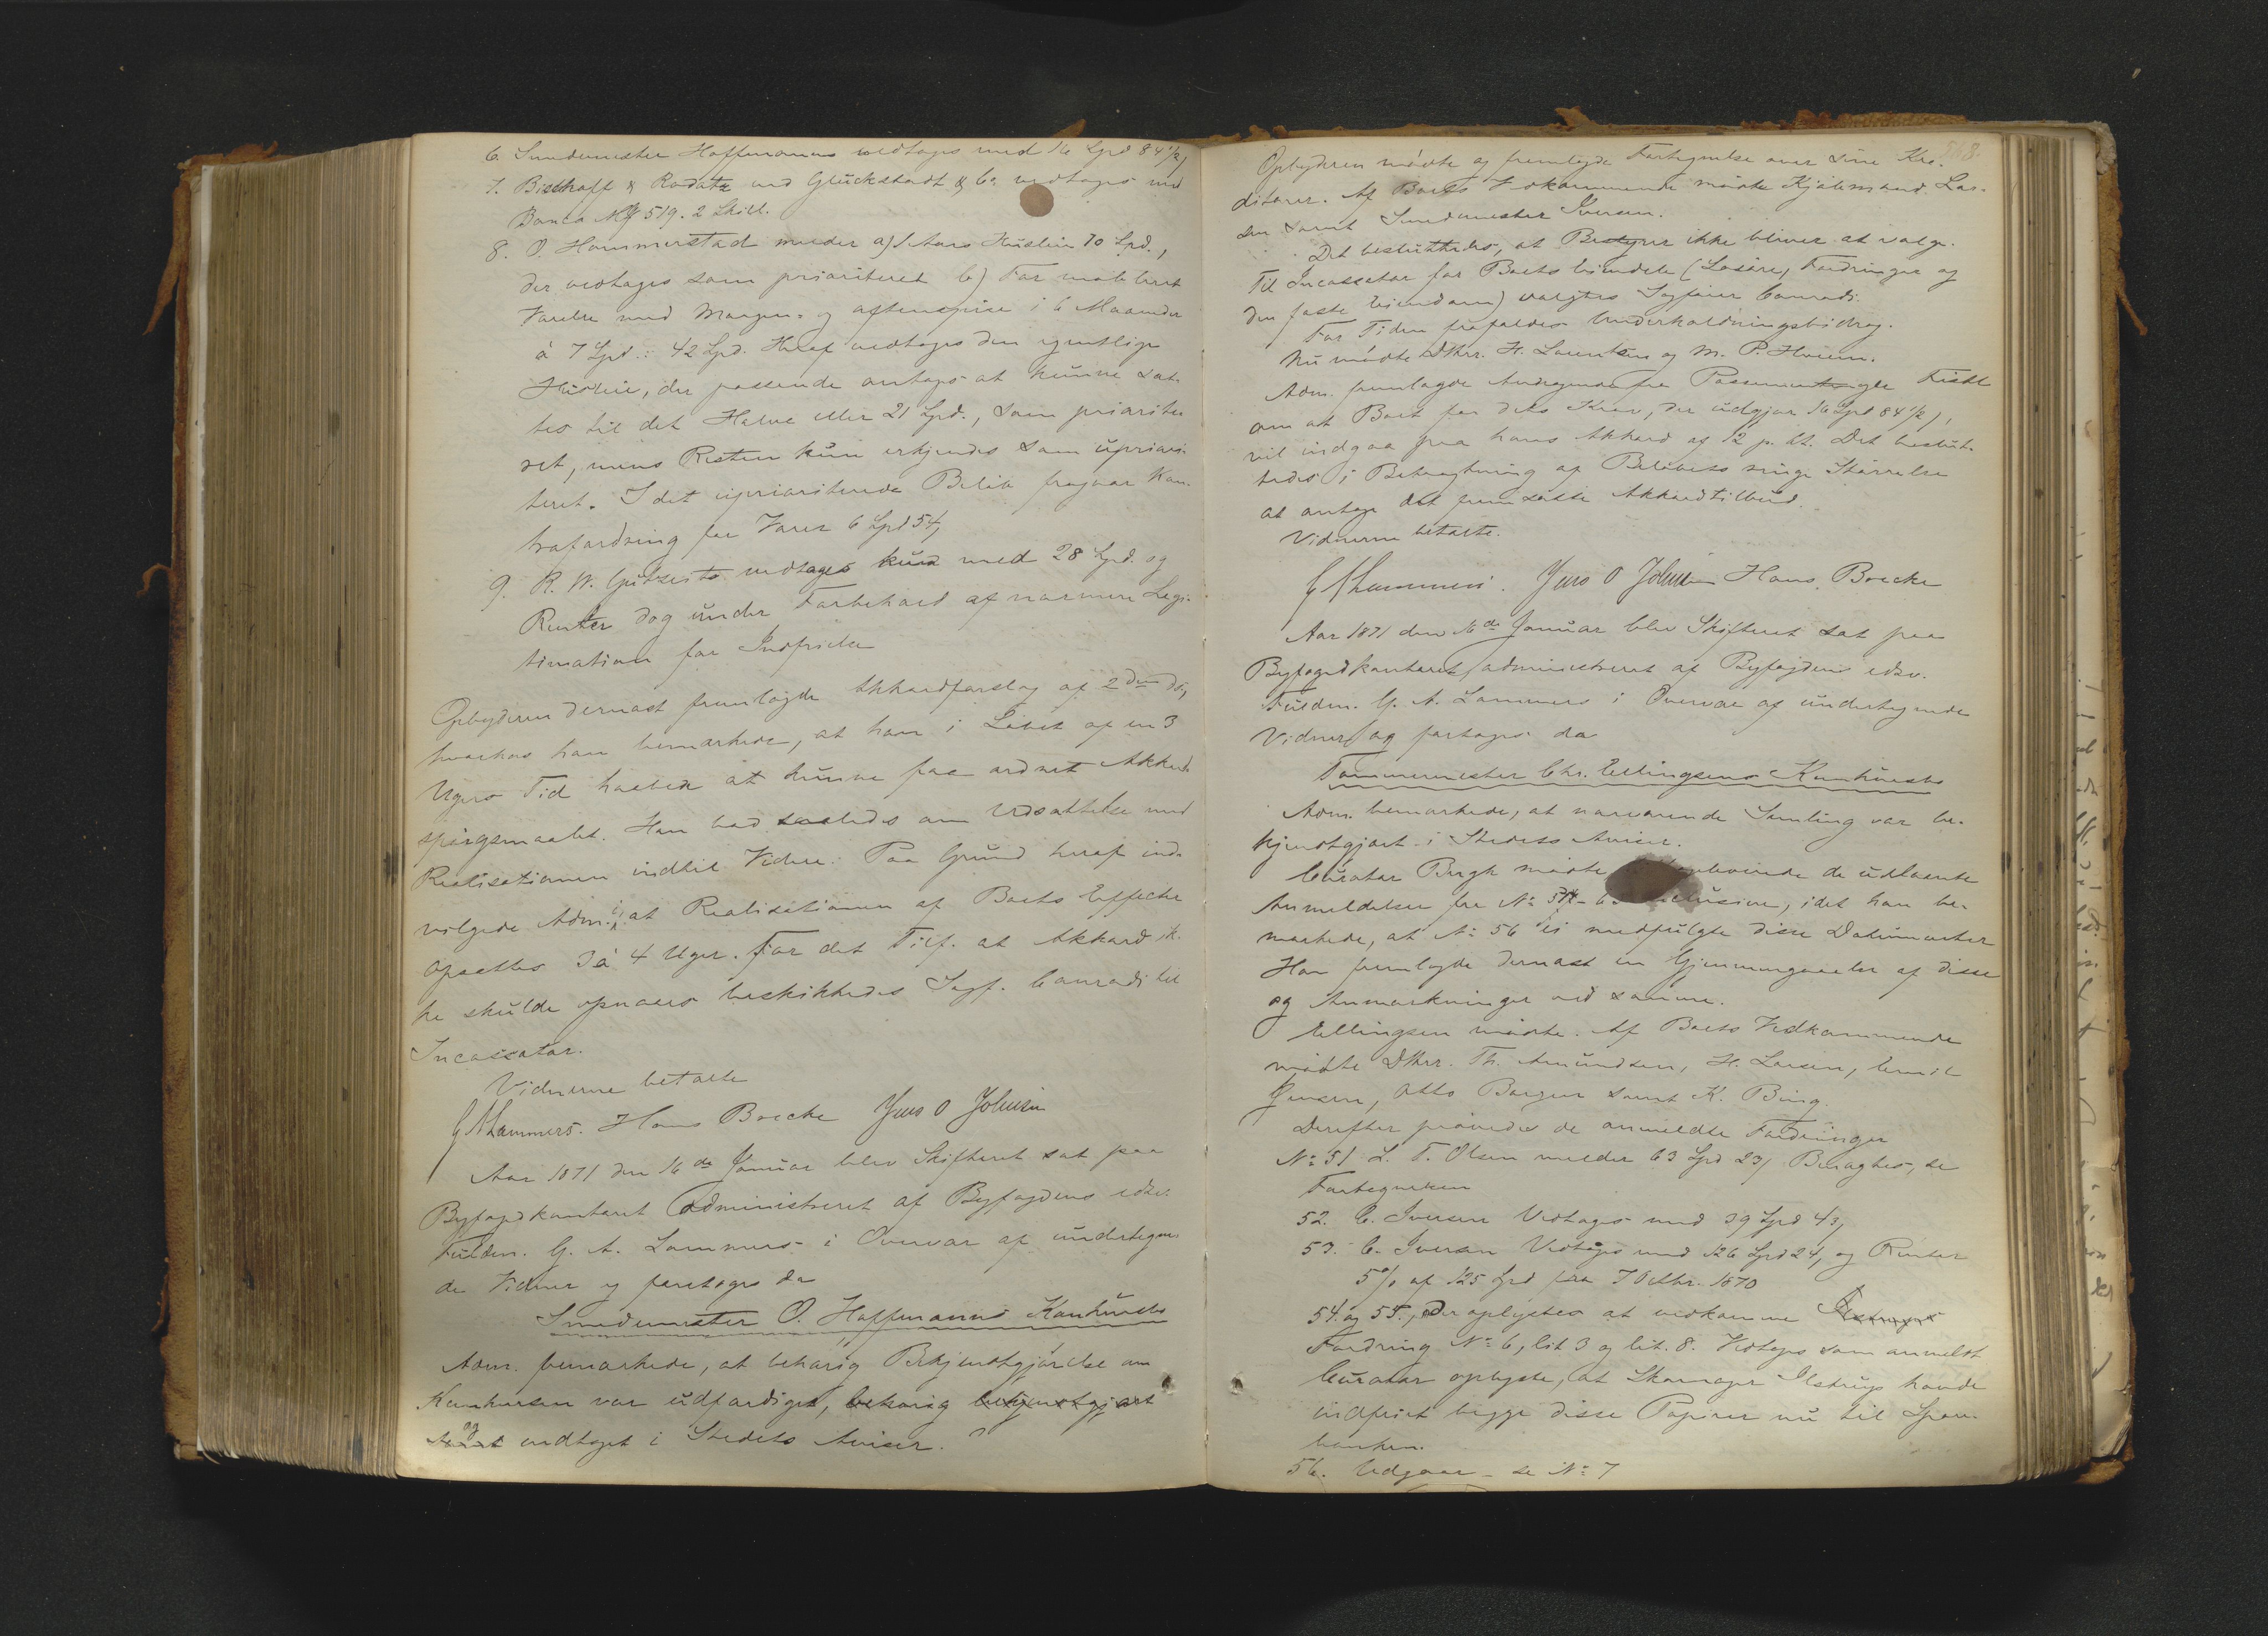 6. Smedemester Hoffmanns vedtages med 16 Spd 84 1/2,
7. Bischoff & Rodatz ved Gluckstadt & Co vedtages med
Banco M# 519. 2 Skill.
8. O. Hammerstad melder a) 1 Aars Husleie 70 Spd.,
der vedtages som prioriteret b) For møbleret
Værelse med Morgen- og Aftenspise i 6 Maaneder
à 7 Spd.: 42 Spd. Heraf vedtages den egentlige
Husleie, der passende antages at kunne sæt-
tes til det Halve eller 21 Spd., som priorite-
ret, mens Resten kun erkjendes som upriori-
teret. I det uprioriterede Beløb fragaar Kon-
trafordring for Varer 6 Spd 54,
9. R. W. vedtages kun med 28 Spd. og
Renter dog under Forbehold af nærmere Legi-
timation for Indfrielse
Opbyderen dernæst fremlagde Akkordforslag af 2den ds,
hvorhos han bemærkede, at han i Løbet af en 3
Ugers Tid haabede at kunne faa ordnet Akkord-
spørgsmaalet. Han bad saaledes om Udsættelse med
Realisationen indtil Videre. Paa Grund heraf ind-
vilgede Adm. i, at Realisationen af Boets Effecter
opsættes 3 à 4 Uger. For det Tilf. at Akkord ik-
ke skulde opnaaes beskikkedes Sagf. Conradi til
Incassator.
Vidnerne betalte
G A Lammers. Hans Boecke Jens O Johnsen
Aar 1871 den 16de Januar blev Skifteret sat paa
Byfogdkontoret administreret af Byfogdens edsv.
Fuldm. G. A. Lammers i Overvær af undertegne-
de Vidner og foretoges da
Smedemester O. Hoffmanns Konkursbo
Adm. bemærkede, at behørig Bekjendtgjørelse om
Konkursen var udfærdiget, behørig bekjendtgjort
og indtaget i Stedets Aviser.
568
Opbyderen mødte og fremlagde Fortegnelse over sine Kre-
ditorer. Af Boets Vedkommende mødte Kjøbmænd. Lar-
sen samt Smedemester Iversen.
Det besluttedes, at Bestyrer ikke bliver at vælge.
Til Incassator for Boets Eiendele (Løsøre, Fordringer og
den faste Eiendom) valgtes Sagfører Conradi.
For Tiden frafaldes Underholdningsbidrag.
Nu mødte DHrr. H. Laurentzen og M. P. Hveem.
Adm. fremlagde Andragende fra
om at Boet for dets Krav, der udgjør 16 Spd 84 1/2,
vil indgaa paa hans Akkord af 12 p. Ct. Det beslut-
tedes i Betragtning af Beløbets ringe Størrelse
at antage det fremsatte Akkordtilbud.
Vidnerne betalte.
G A Lammers. Jens O Johnsen Hans Boecke
Aar 1871 den 16de Januar blev Skifteret sat paa
Byfogdkontoret, administreret af Byfogdens edsv.
Fuldm. G. A. Lammers i Overvær af undertegnede
Vidner, og foretoges da
Tømmermester Chr. Ellingsens Konkursbo
Adm. bemærkede, at nærværende Samling var be-
kjendtgjort i Stedets Aviser.
Curator Bugge mødte de udlaante
Anmeldelser fra No 51 - inclusive, idet han be-
mærkede, at No 56 ei medfulgte disse Dokumenter
Han fremlagde dernæst en Gjennemgaaelse af disse
og Anmærkninger ved samme.
Ellingsen mødte. Af Boets Vedkommende
mødte DHrr. Th. Amundsen, H. Larsen, Emil
Jensen, Otto Borgen samt K. Bing.
Derefter prøvedes de anmeldte Fordringer
No 51 L. T. Olsen melder 63 Spd 23, Benægtes, se
Fortegnelsen
52. C. Iversen Vedtages med 39 Spd 43,
53. C. Iversen Vedtages med 126 Spd 24, og Renter
5% af 125 Spd fra 7 Octbr. 1870
54. og 55., der oplystes at vedkomme
Fordring No 6, lit 3 og lit. 8. Vedtages som anmeldt
Curator oplyste, at Skomager Ilstrup havde
indfriet begge disse Papirer nu til Spare-
banken.
56. Udgaar - se No 7